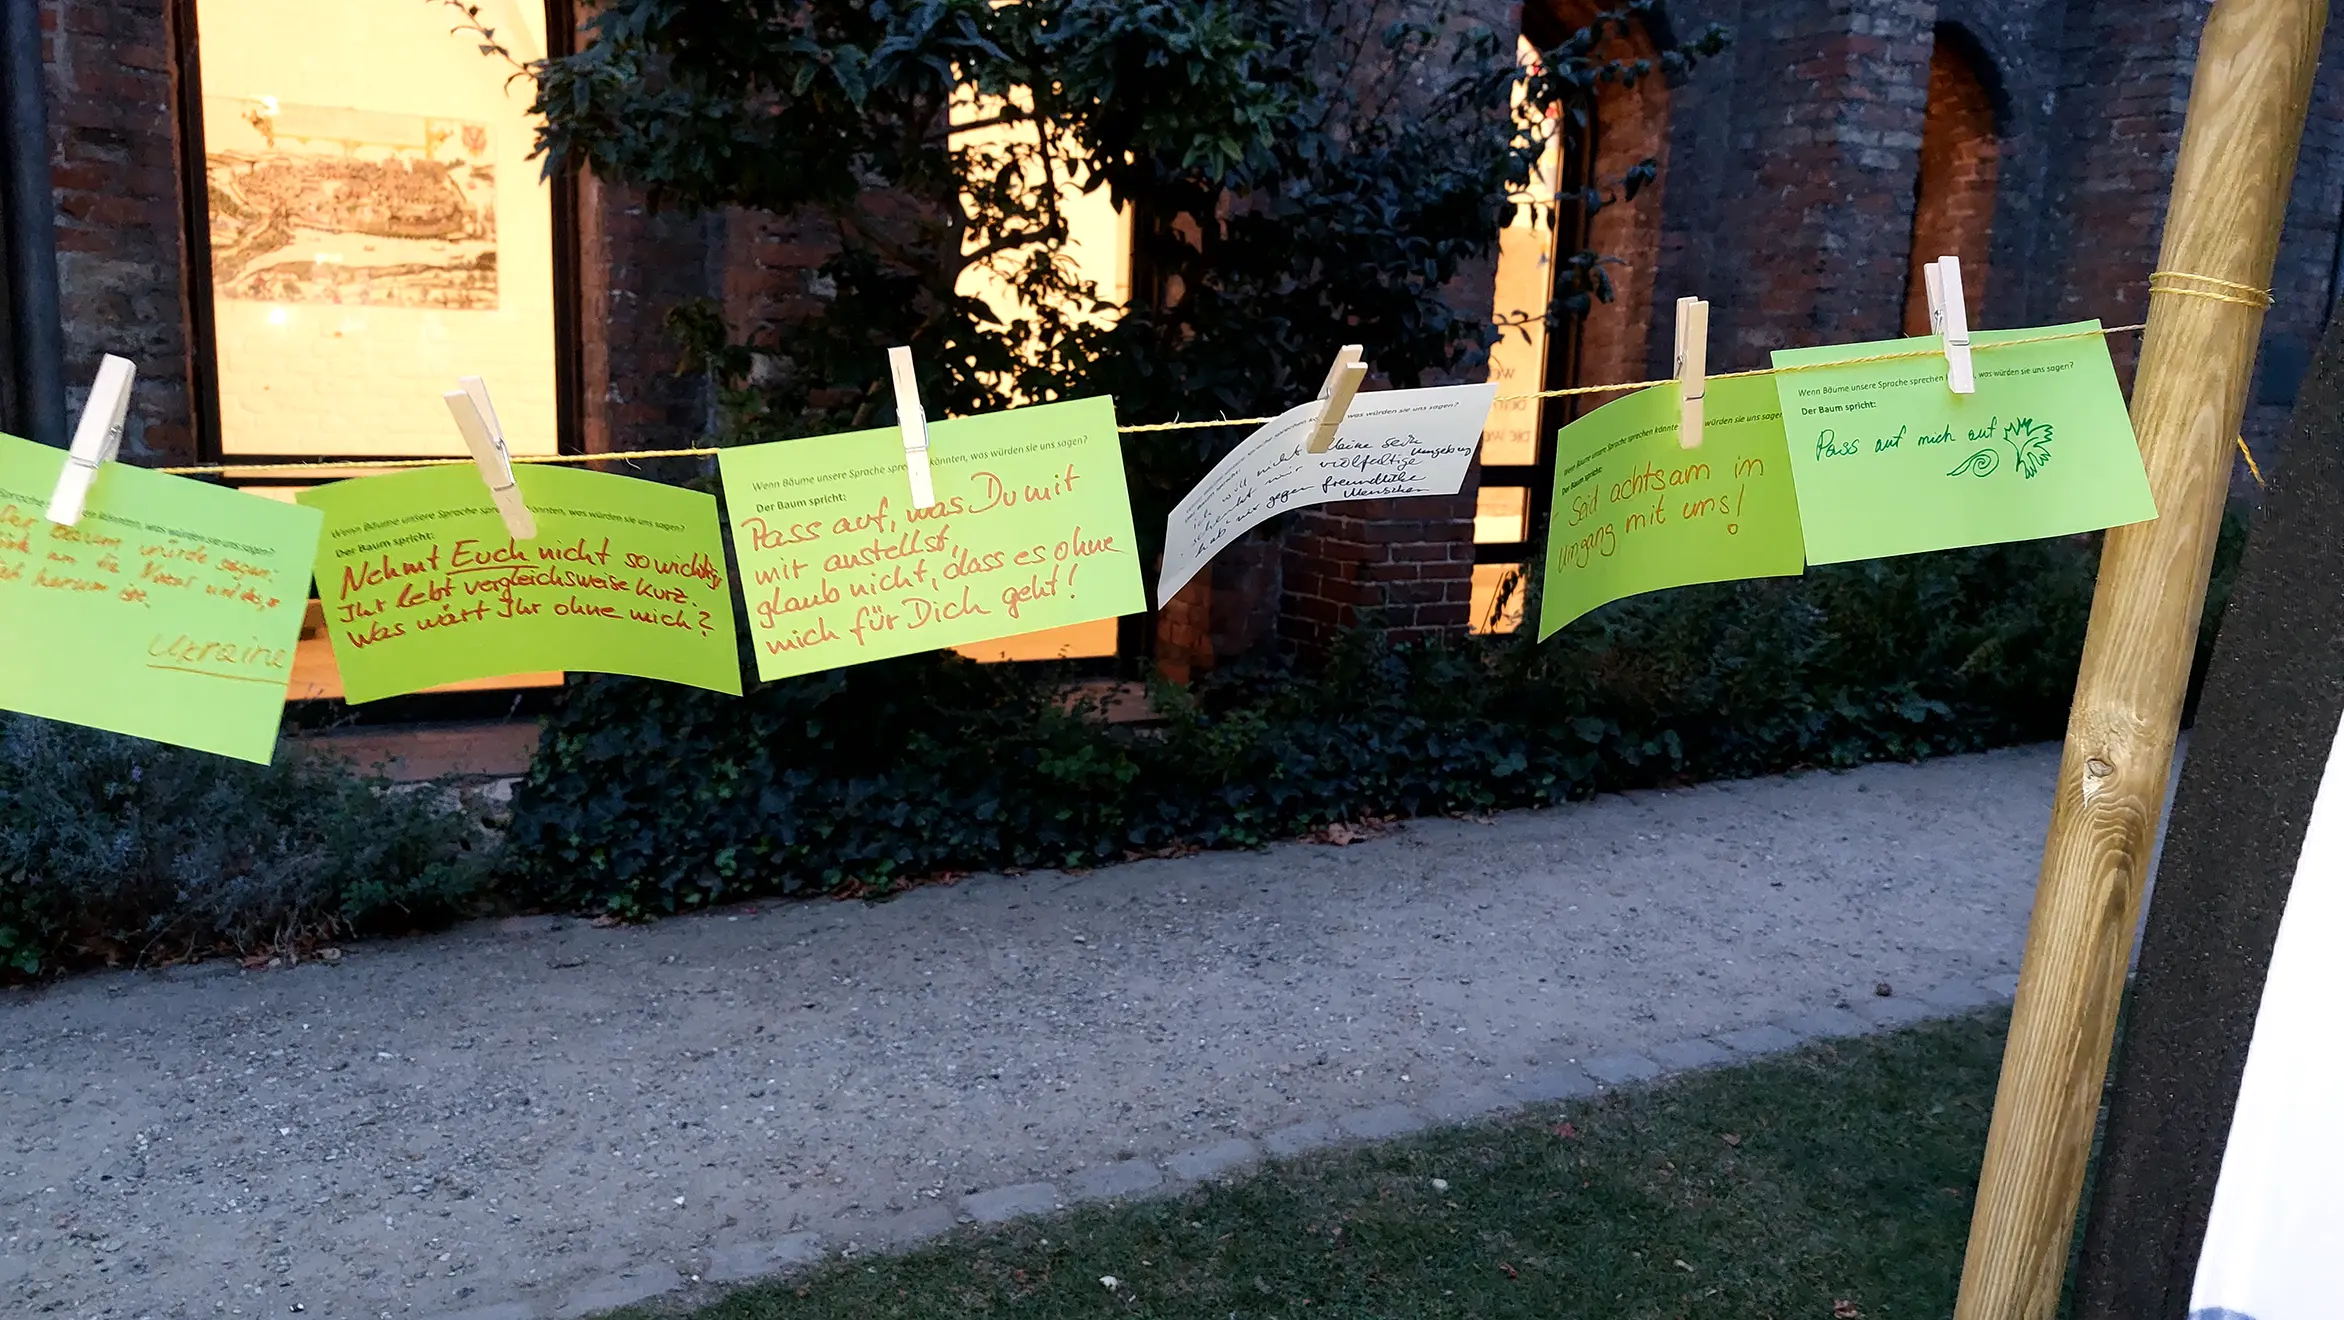 Sprache sprechen könnten, was würden sie uns sagen?
Der Baum würde sagen:
um die Natur und das,
herum ist.
Ukraine
Wenn Bäume unsere Sprache sprechen könnten, was würden sie uns sagen?
Der Baum spricht:
Nehmt Euch nicht so wichtig,
Ihr lebt vergleichsweise kurz.
Was wärt Ihr ohne mich?
Wenn Bäume unsere Sprache sprechen könnten, was würden sie uns sagen?
Der Baum spricht:
Pass auf, was Du mit
mir anstellst,
glaub nicht, dass es ohne
mich für Dich geht!
sprechen könnten, was würden sie uns sagen?
ich will nicht alleine sein
schenkt mir vielfältige Umgebung
hab' nix gegen freundliche
Menschen
Wenn Bäume unsere Sprache sprechen könnten, was würden sie uns sagen
Der Baum spricht:
- Seid achtsam im
Umgang mit uns!
Wenn Bäume unsere Sprache sprechen was würden sie uns sagen?
Der Baum spricht:
Pass auf mich auf